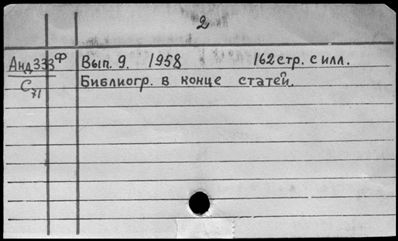 2
Анд333ф Вып. 9. 1958 162 стр. с илл.
С71 Библиогр. в конце статей.